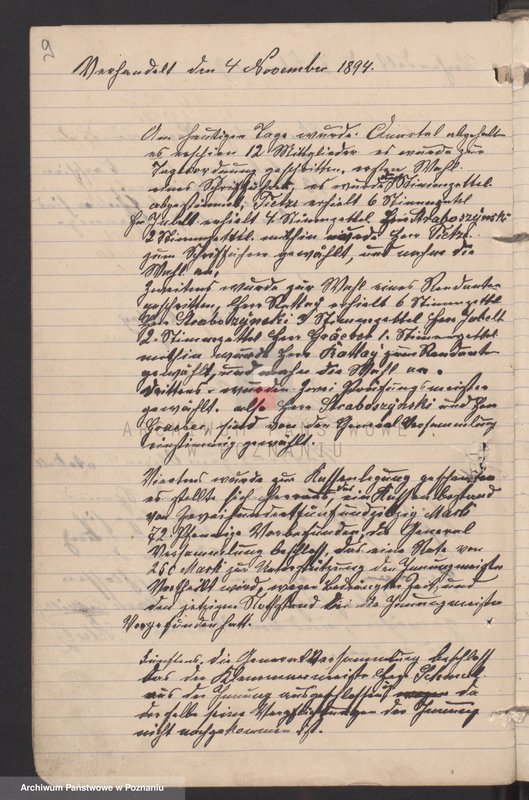 9
Verhandelt den 4 November 1894.
Am heutigen Tage wurde Quartal abgehalten
es erschien 12 Mitglieder es wurde zur
Tagesordnung geschritten, erstens Wahl
eines Schriftführers, es wurde mit Stimmzettel
abgestimmt, Tietz erhielt 6 Stimmzettel
Herr Jabelt erhielt 4 Stimmzettel Herr Straboszynski
2 Stimmzettel mithin wurde Herr Tietz
zum Schriftführer gewählt, und nahm die
Wahl an,
Zweitens wurde zur Wahl eines Rendanten
geschritten, Herr Kattay erhielt 6 Stimmzettl
Herr Straboszynski 3 Stimmzettel Herr Jabelt
2. Stimmzettel Herr 1. Stimmzettel
mithin wurde Herr Kattay zum Rendant
gewählt und nahm die Wahl an.
Drittens. wurden zwei Prüfungsmeister
gewählt. also Herr Straboszynski und Herr
sind von der General Versammlung
einstimmig gewählt.
Viertens wurde zur Kassenlegung geschritten
es stellte sich heraus ein Kassenbestand
von Mark
72 Pfennige Vorbefunden, die General
Versammlung beschloß, das eine Rate von
250 Mark zur Unterstützung den Innungsmeister
Vertheilt wird, wegen bedrängter Zeit, und
den jetzigen Nothstand die Innungsmeister
Vorgefunden hatt.
die General Versammlung beschloß
das der Klemmermeister Herr Schmidt
aus der Innung ausgeschlossen da
derselbe seine Verpflichtungen der Innung
nicht nachgekommen ist.
ARCHIWUM PAŃSTWOWE
W POZNANIU
Archiwum Państwowe w Poznaniu